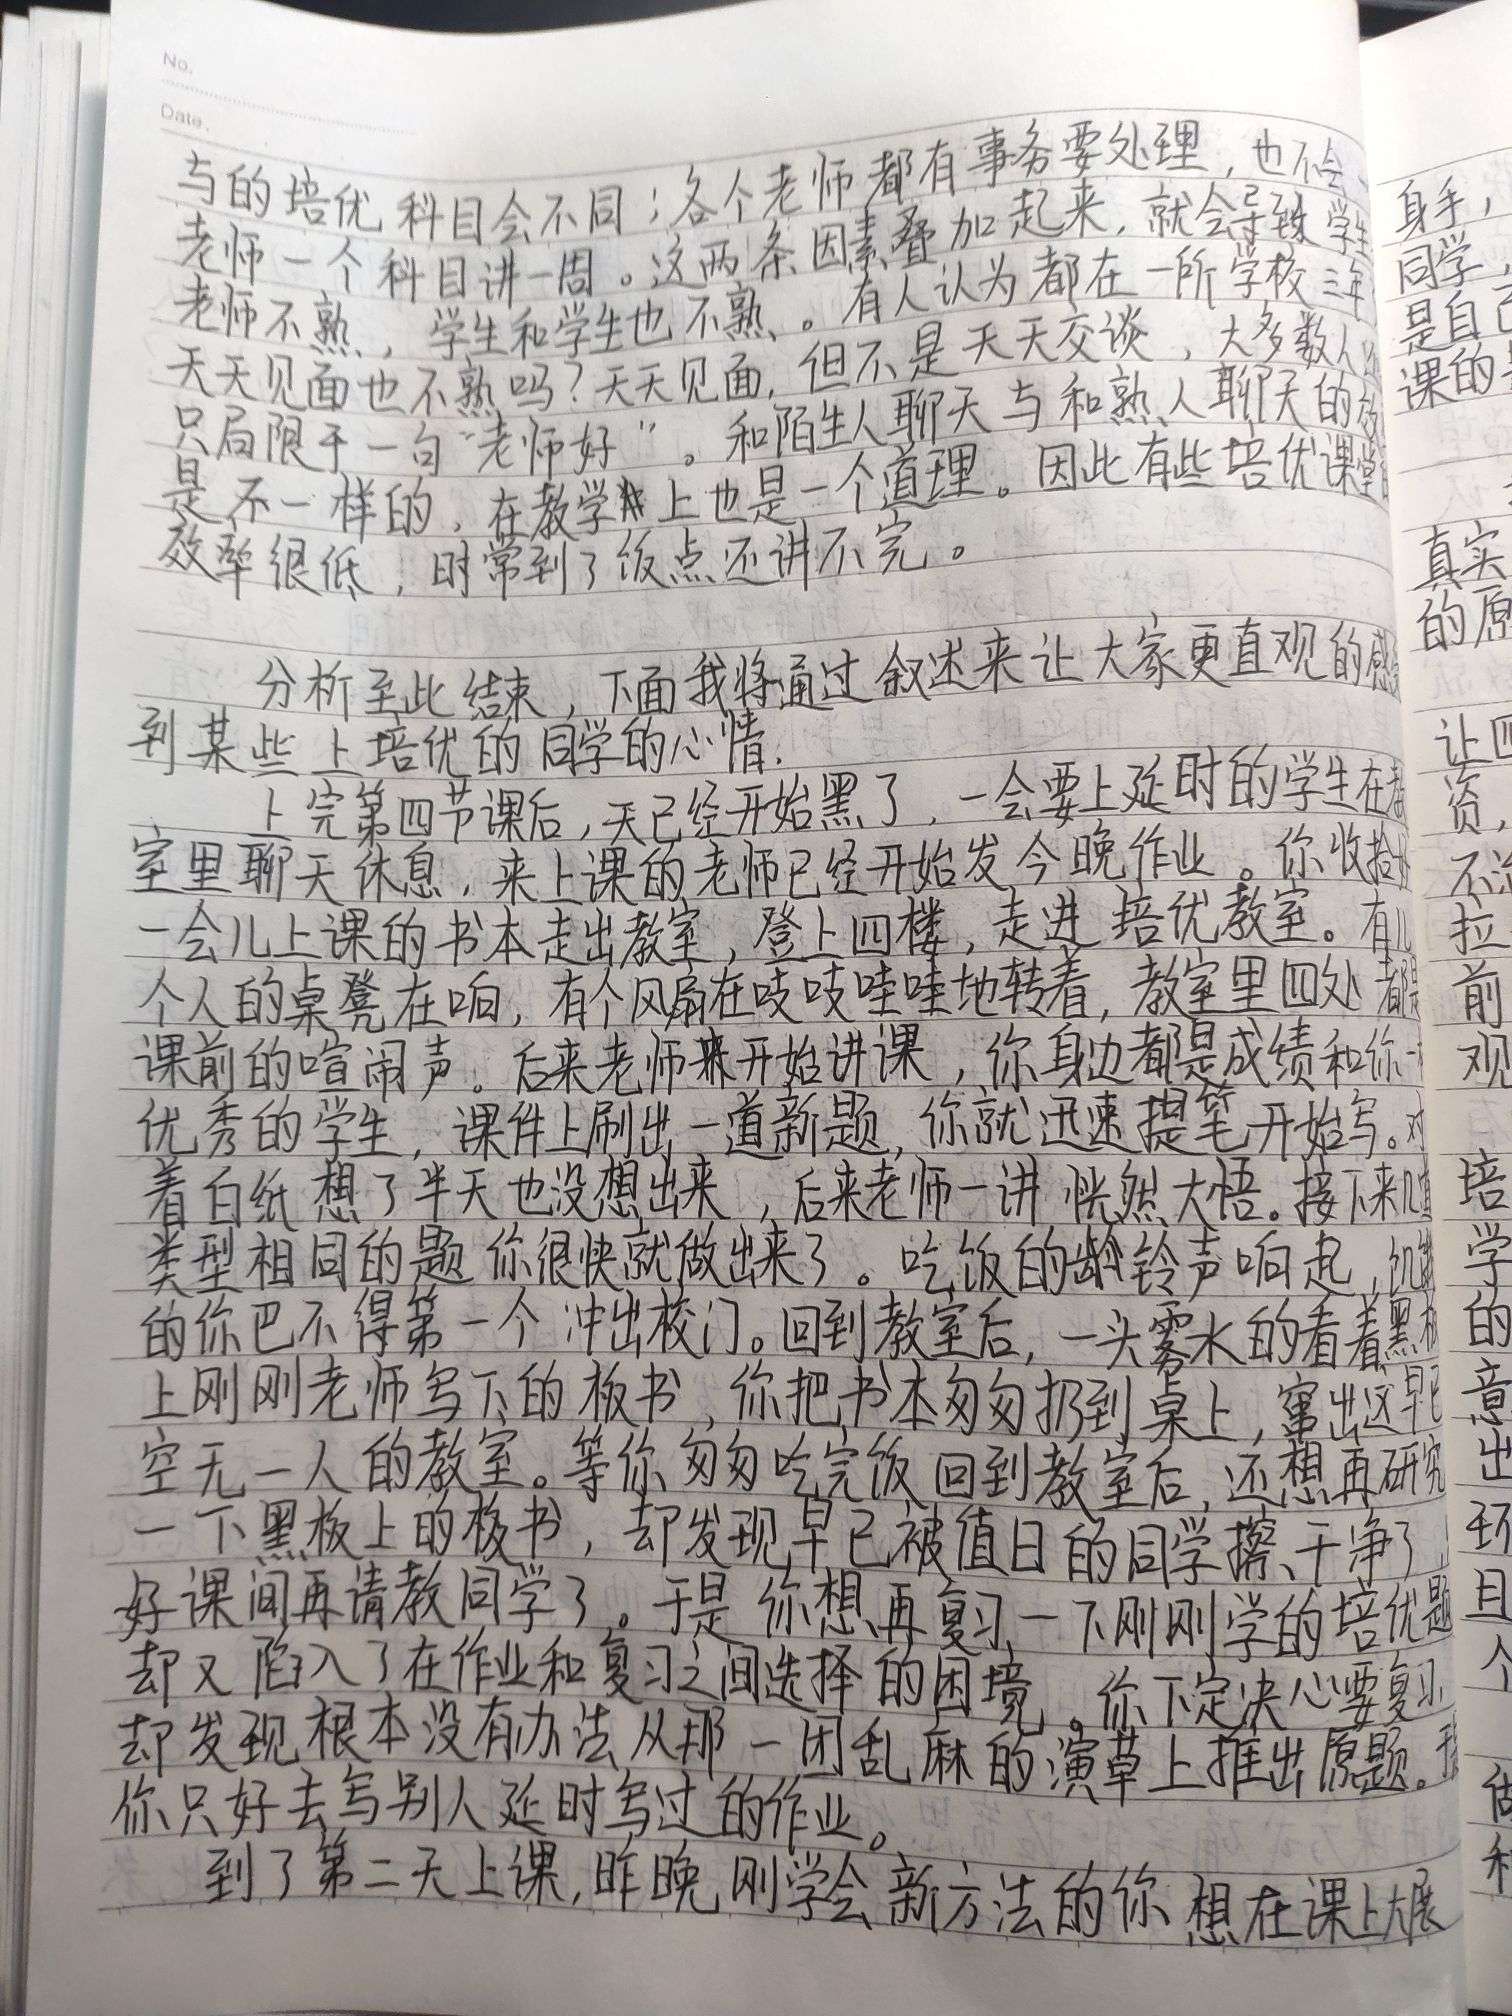 No.
Date.
与的培优科目会不同；各个老师都有事务要处理，也不会
老师一个科目讲一周。这两条因素叠加起来，就会导致学生
老师不熟，学生和学生也不熟。有人认为都在一所学校三年
天天见面也不熟吗？天天见面，但不是天天交谈，大多数人
只局限于一句“老师好”。和陌生人聊天与和熟人聊天的效
是不一样的，在教学上也是一个道理。因此有些培优课堂
效率很低，时常到了饭点还讲不完。
分析至此结束，下面我将通过叙述来让大家更直观的感
到某些上培优的同学的心情.
上完第四节课后，天已经开始黑了，一会要上延时的学生在教
室里聊天休息，来上课的老师已经开始发今晚作业。你收拾好
一会儿上课的书本走出教室，登上四楼，走进培优教室。有几
个人的桌凳在响，有个风扇在吱吱哇哇地转着，教室里四处都是
课前的喧闹声。后来老师来开始讲课，你身边都是成绩和你一
优秀的学生，课件上刷出一道新题，你就迅速提笔开始写。对
着白纸想了半天也没想出来，后来老师一讲恍然大悟。接下来几道
类型相同的题你很快就做出来了。吃饭的铃声响起，饥
的你巴不得第一个冲出校门。回到教室后，一头雾水的看着黑板
上刚刚老师写下的板书，你把书本匆匆扔到桌上，窜出这早已
空无一人的教室。等你匆匆吃完饭回到教室后，还想再研究
一下黑板上的板书，却发现早已被值日的同学擦干净了
好课间再请教同学了。于是你想再复习一下刚刚学的培优题
却又陷入了在作业和复习之间选择的困境。你下定决心要复习
却发现根本没有办法从那一团乱麻的演草上推出原题。
你只好去写别人延时写过的作业。
到了第二天上课，昨晚刚学会新方法的你想在课上大展
身手，
同学，
是自己
课的
真实
的原
让四
资，
不
拉
前
观
培
学
的
意
出
环
且
个